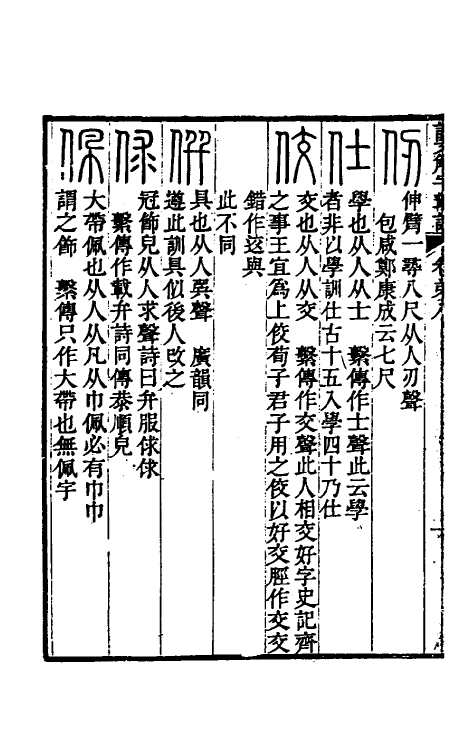 仞
伸臂一尋八尺从人刃聲
包咸鄭康成云七尺
仕
學也从人从士　繫傳作士聲此云學
者非以學訓仕古十五入學四十乃仕
佼
交也从人从交　繫傳作交聲此人相交好字史記齊
之事王宜爲上佼荀子君子用之佼以好交脛作交交
錯作䢒與
此不同
僎
具也从人巽聲　廣韻同
遵此訓具似後人攺之
俅
冠飾皃从人求聲詩曰弁服俅俅
繫傳作載弁詩同傳恭順皃
佩
大帶佩也从人从凡从巾佩必有巾巾
謂之飾　繫傳只作大帶也無佩字